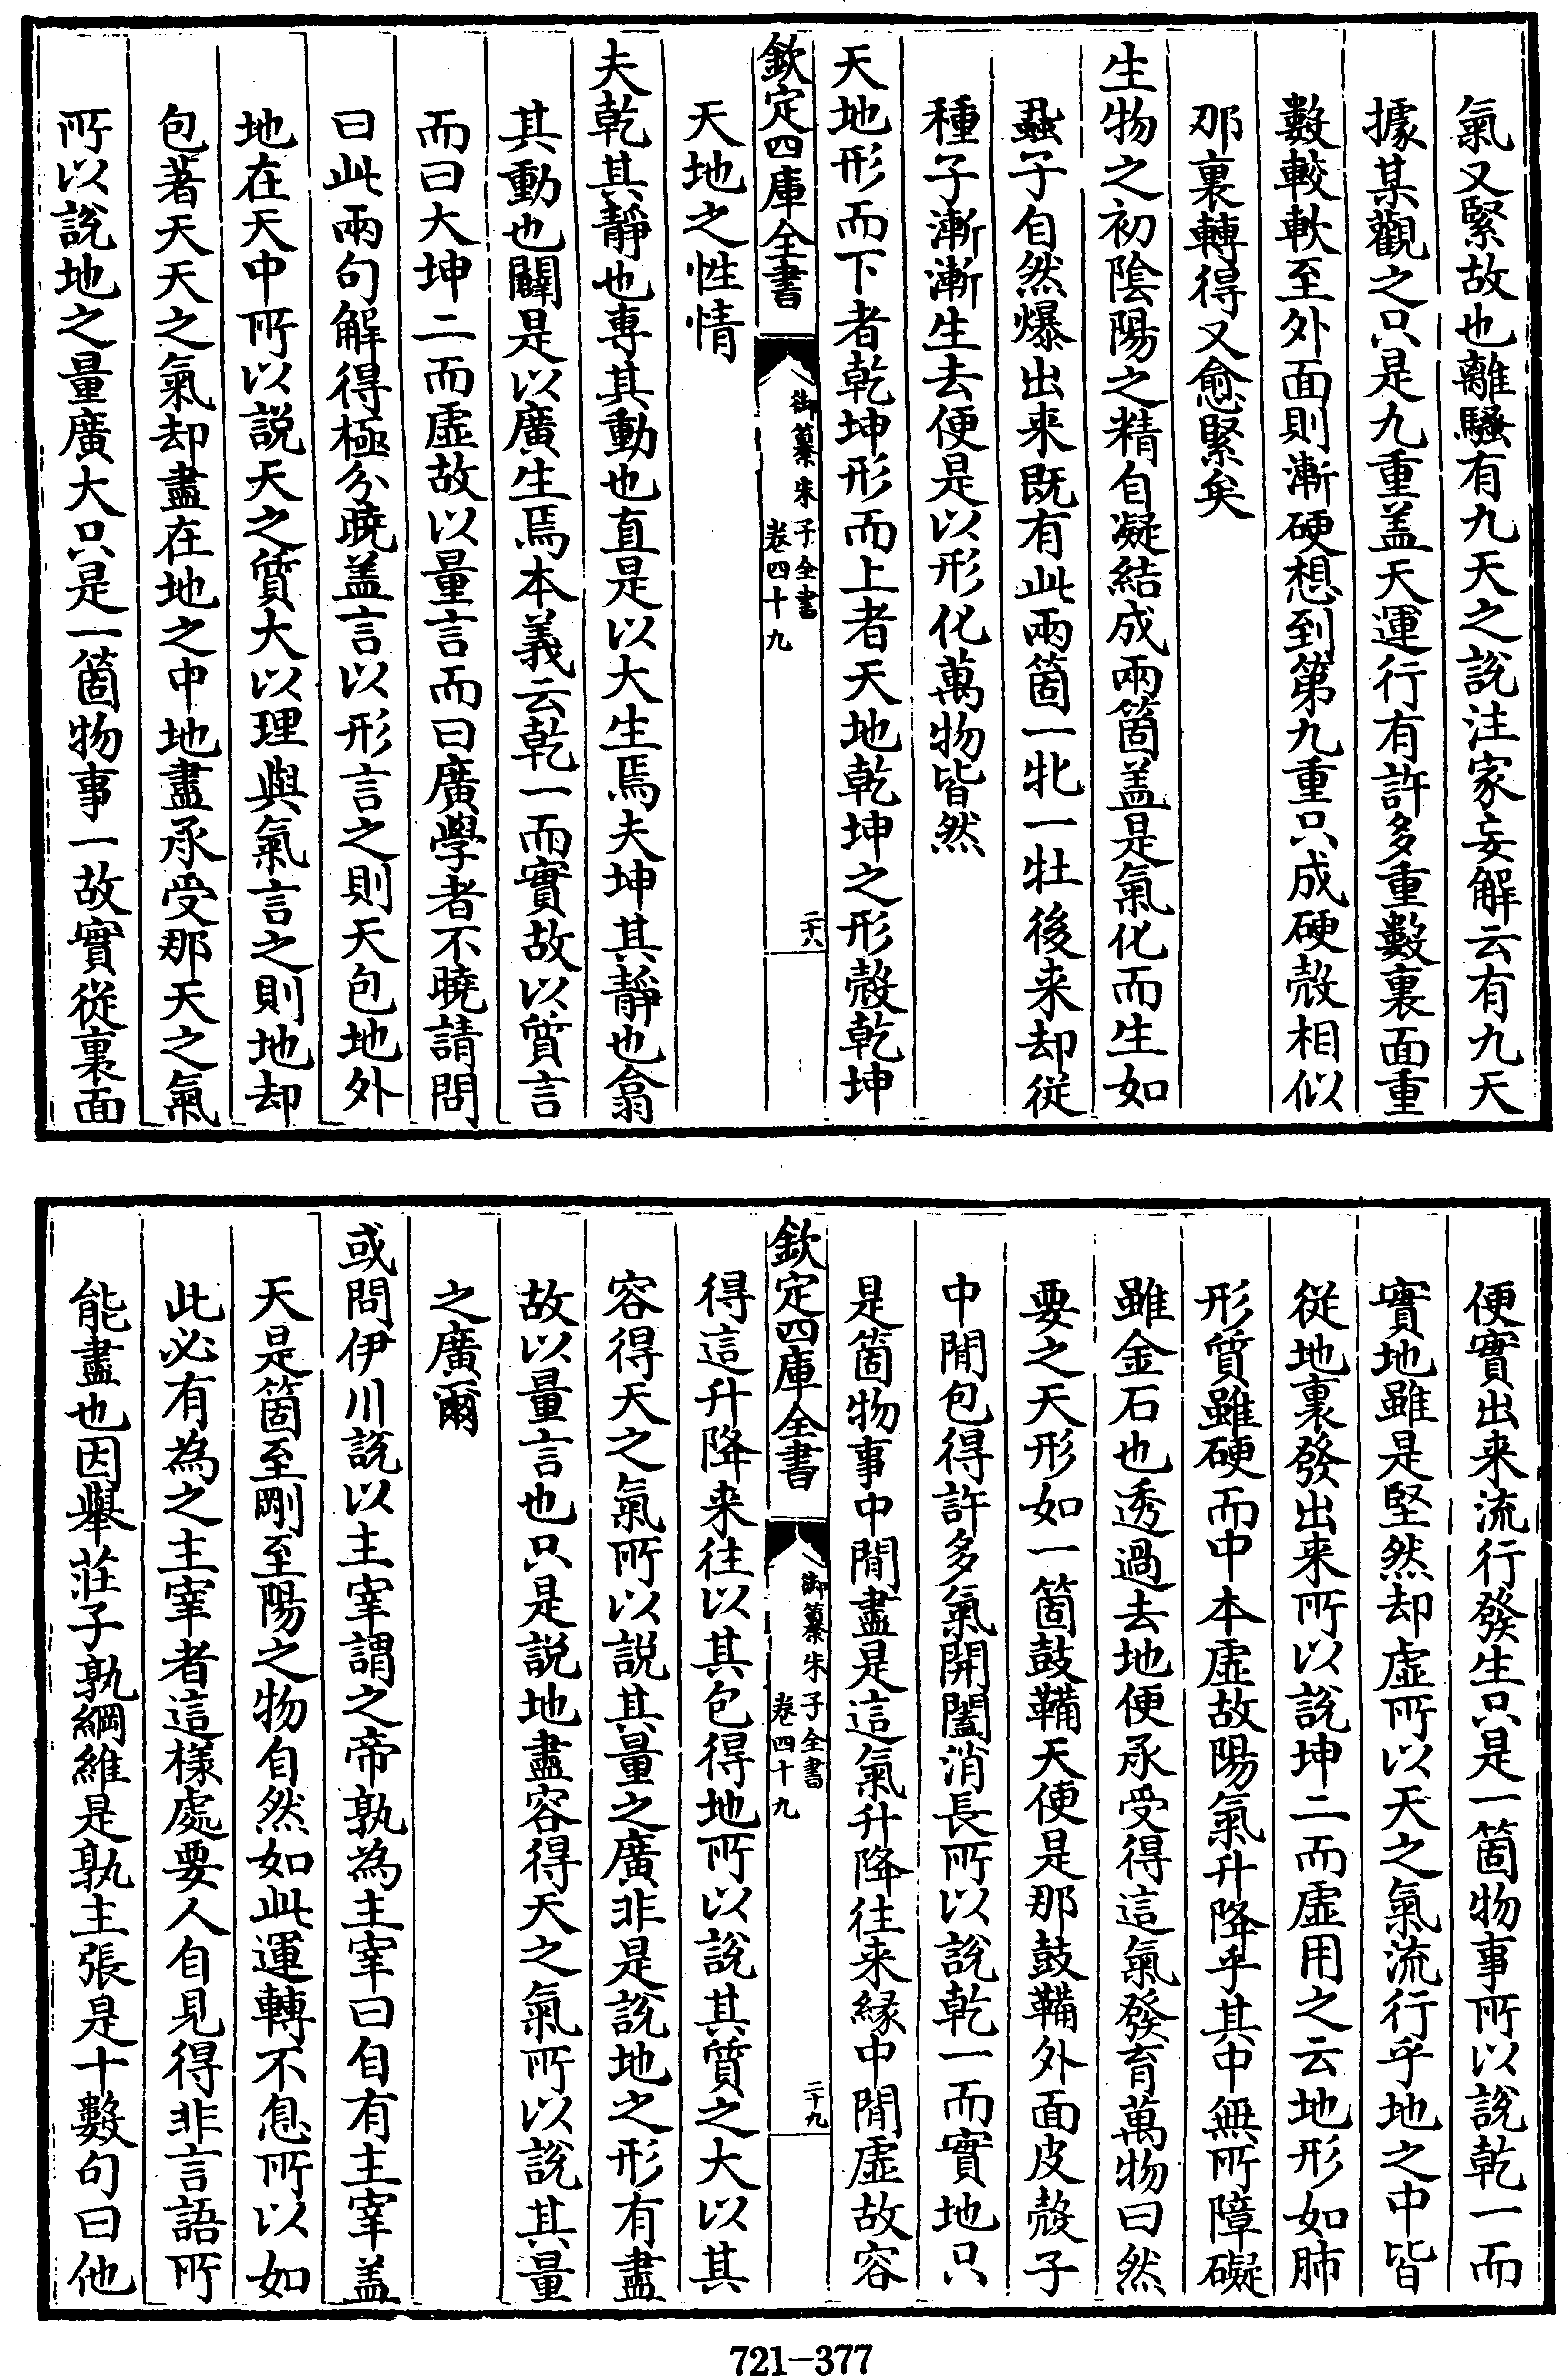 氣又緊故也離騷有九天之說注家妄解云有九天
據某觀之只是九重盖天運行有許多重數裏面重
數較軟至外面則漸硬想到第九重只成硬殼相似
那裏轉得又愈緊矣
生物之初陰陽之精自凝結成兩箇盖是氣化而生如
蝨子自然爆出来既有此兩箇一牝一牡後来却従
種子漸漸生去便是以形化萬物皆然
天地形而下者乾坤形而上者天地乾坤之形殼乾坤
欽定四庫全書
御纂朱子全書
卷四十九
二十八
天地之性情
夫乾其靜也專其動也直是以大生焉夫坤其靜也翕
其動也闢是以廣生焉本義云乾一而實故以質言
而曰大坤二而虛故以量言而曰廣學者不曉請問
曰此兩句解得極分曉盖言以形言之則天包地外
地在天中所以説天之質大以理與氣言之則地却
包著天天之氣却盡在地之中地盡承受那天之氣
所以說地之量廣大只是一箇物事一故實從裏面
便實出来流行發生只是一箇物事所以說乾一而
實地雖是堅然却虛所以天之氣流行乎地之中皆
從地裏發出来所以說坤二而虛用之云地形如肺
形質雖硬而中本虛故陽氣升降乎其中無所障礙
雖金石也透過去地便承受得這氣發育萬物曰然
要之天形如一箇鼓鞴天便是那鼓鞴外面皮殼子
中閒包得許多氣開闔消長所以說乾一而實地只
是箇物事中閒盡是這氣升降往来緣中閒虛故容
欽定四庫全書
御纂朱子全書
卷四十九
二十九
得這升降来往以其包得地所以說其質之大以其
容得天之氣所以說其量之廣非是說地之形有盡
故以量言也只是説地盡容得天之氣所以說其量
之廣爾
或問伊川說以主宰謂之帝孰為主宰曰自有主宰盖
天是箇至剛至陽之物自然如此運轉不息所以如
此必有為之主宰者這樣處要人自見得非言語所
能盡也因舉莊子孰綱維是孰主張是十數句曰他
721-377